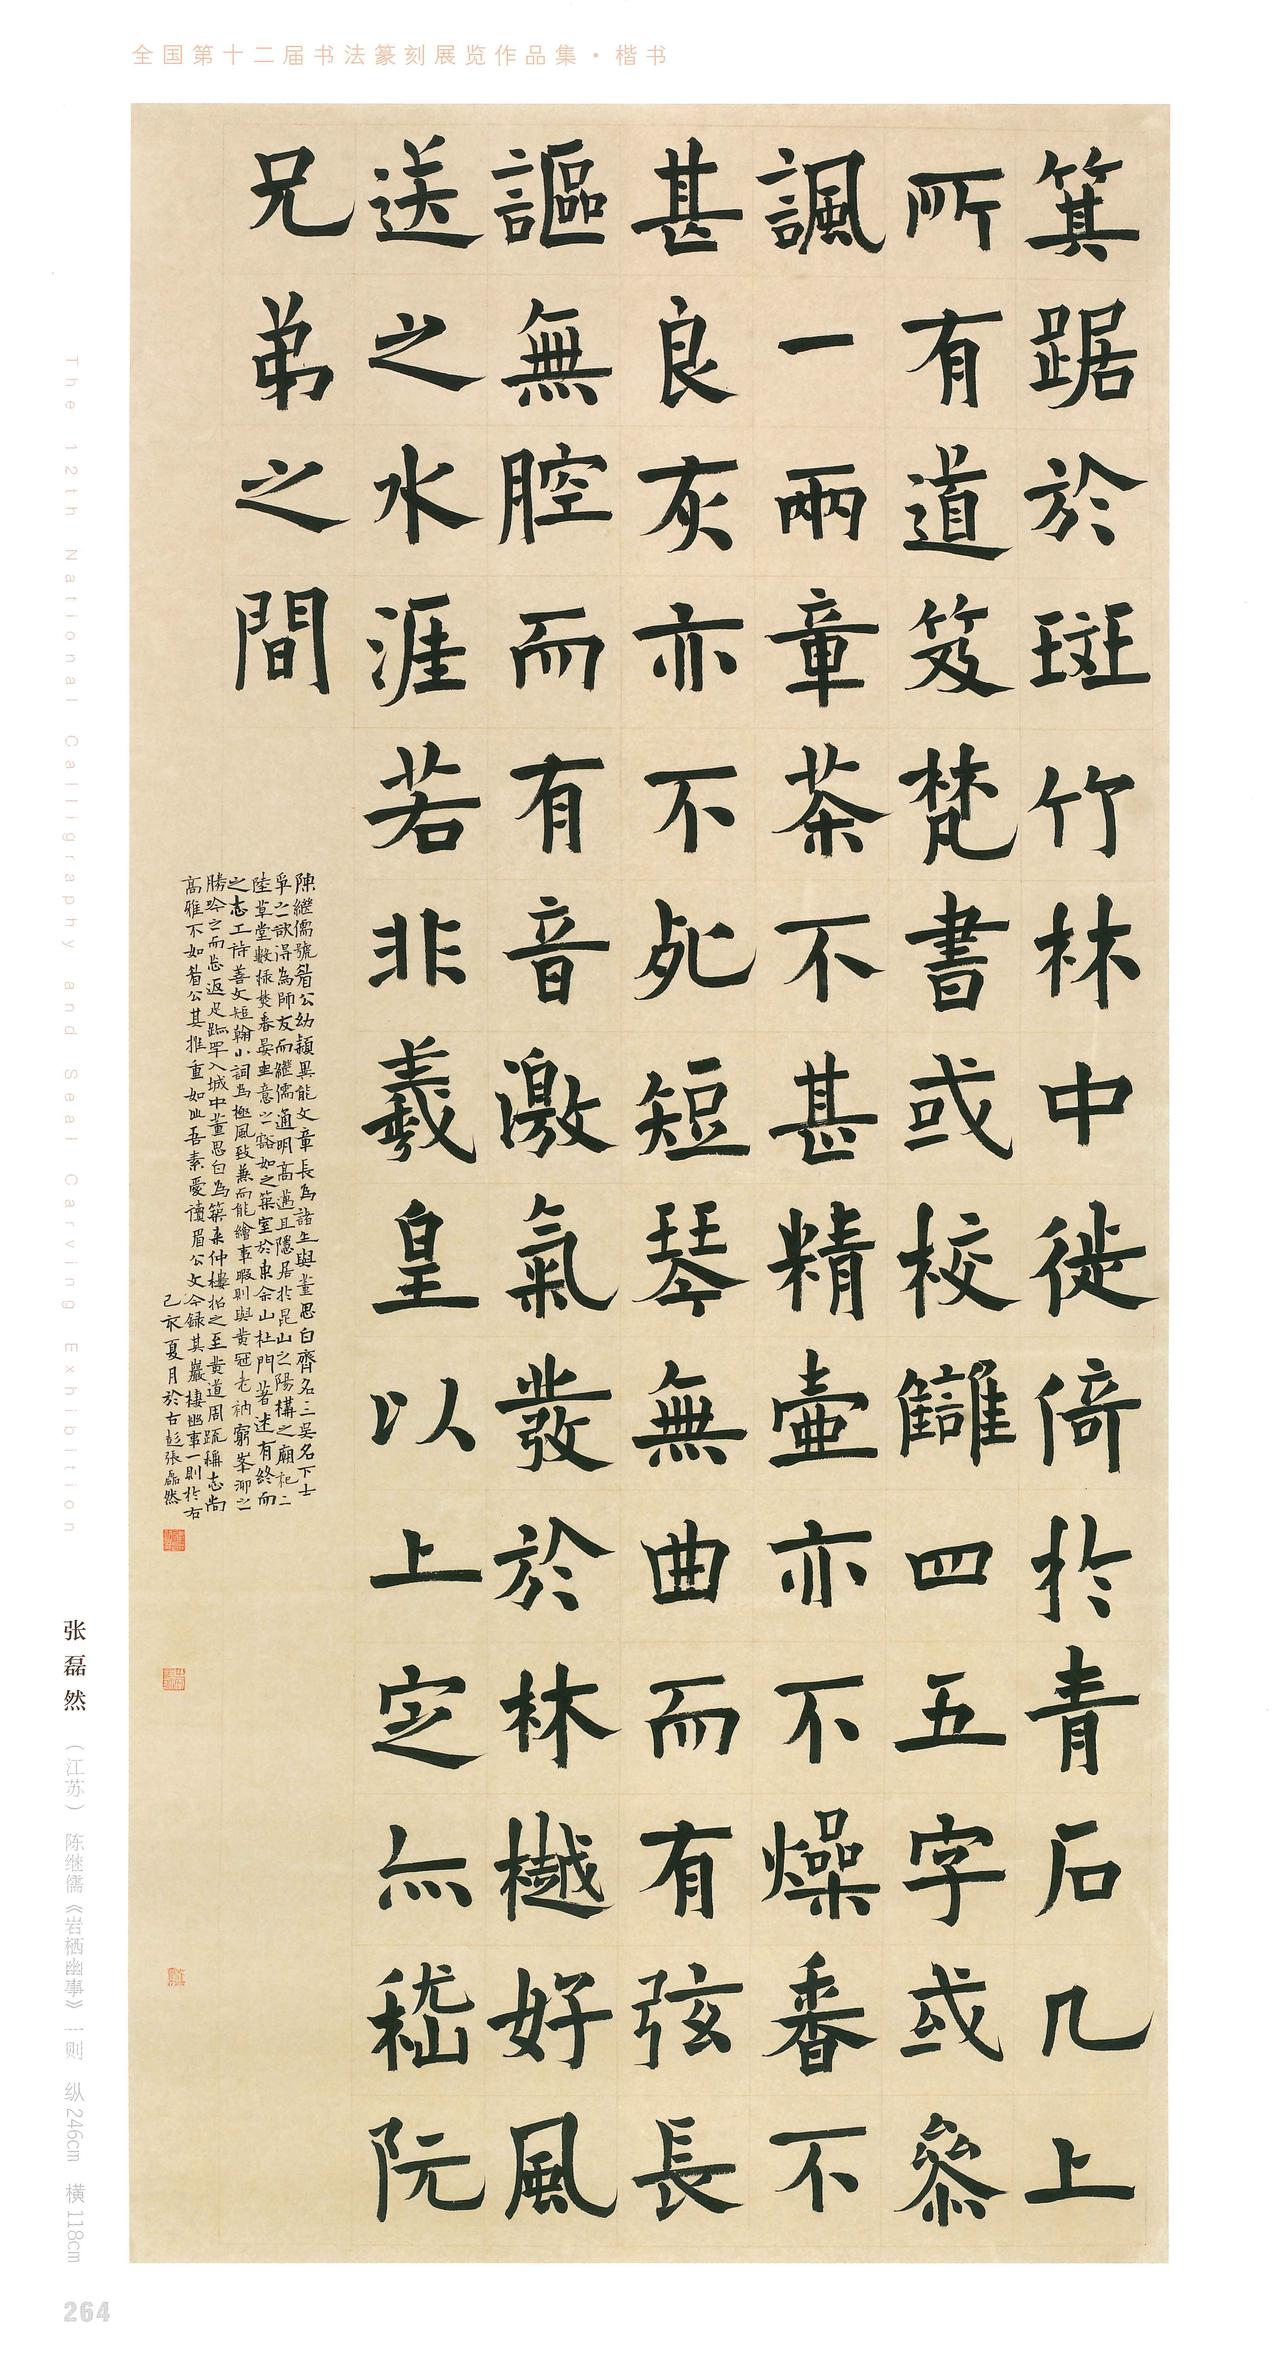 全国第十二届书法篆刻展览作品集·楷书
箕踞於斑竹林中徙倚扵青石几上
所有道笈梵書或校讎四五字或參
諷一兩章茶不甚精壺亦不燥香不
甚良灰亦不死短琴無曲而有弦長
謳無腔而有音激氣發於林樾好風
送之水涯若非羲皇以上定亦嵇阮
兄弟之間
陳繼儒號眉公幼穎異能文章長為諸生與董思白齊名三吳名下士
爭之欲得為師友而繼儒通明高邁且隱居扵昆山之陽構之廟祀二
陸草堂數椽焚香晏坐意之豁如之築室於東佘山杜門著述有終而
之志工詩善文短翰小詞為極風致兼而能繪事暇則與黃冠老衲窮峯泖之
勝吟之而忘返足跡罕入城中董思白為築来仲樓招之至黃道周疏稱志尚
高雅不如眉公其推重如此吾素愛讀眉公文今録其巖棲幽事一則扵右
己亥夏月於古彭張磊然
The 12th National Calligraphy and Seal Carving Exhibition
张磊然（江苏）陈继儒《岩栖幽事》一则 纵246cm 横118cm
264